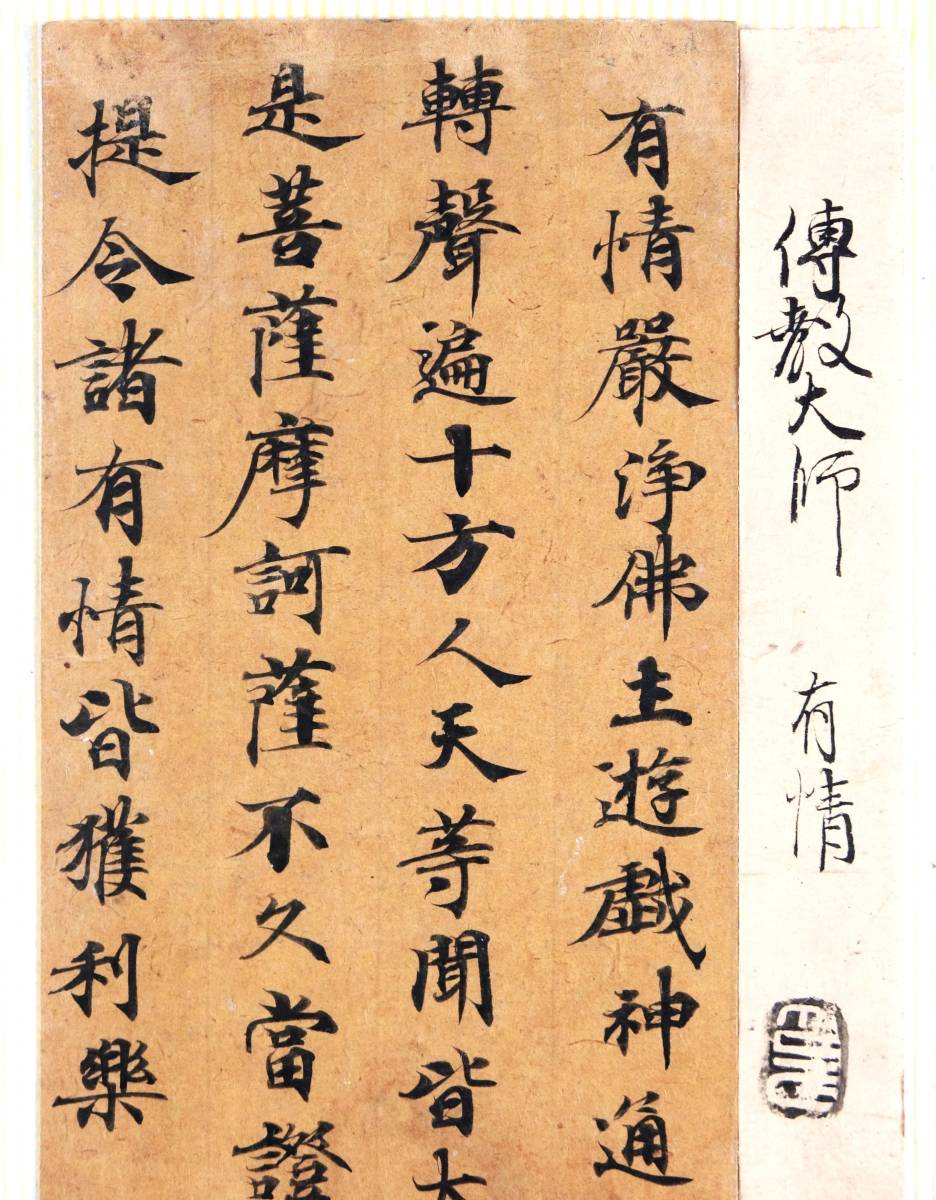 傳教大師 有情
有情嚴淨佛土遊戲神通
轉聲遍十方人天等聞皆大
是菩薩摩訶薩不久當證
提令諸有情皆獲利樂